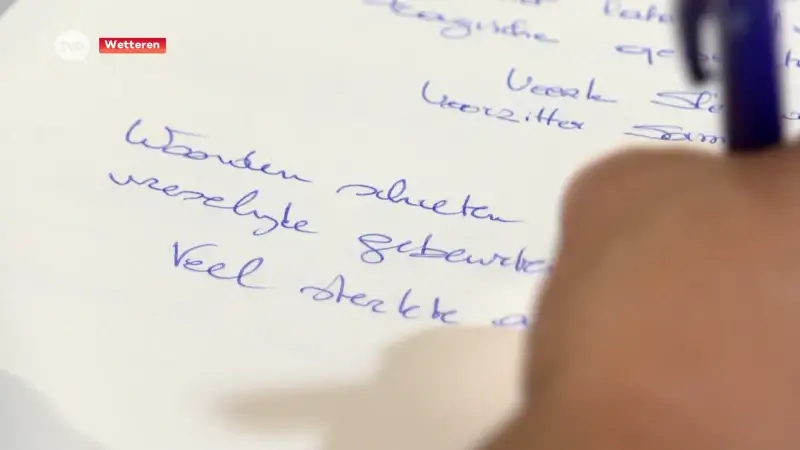 tvo
Wetteren
tragische
Veerle
Voorzitter Sam
Woorden schieten
vreselijke gebeurte
Veel sterkte a